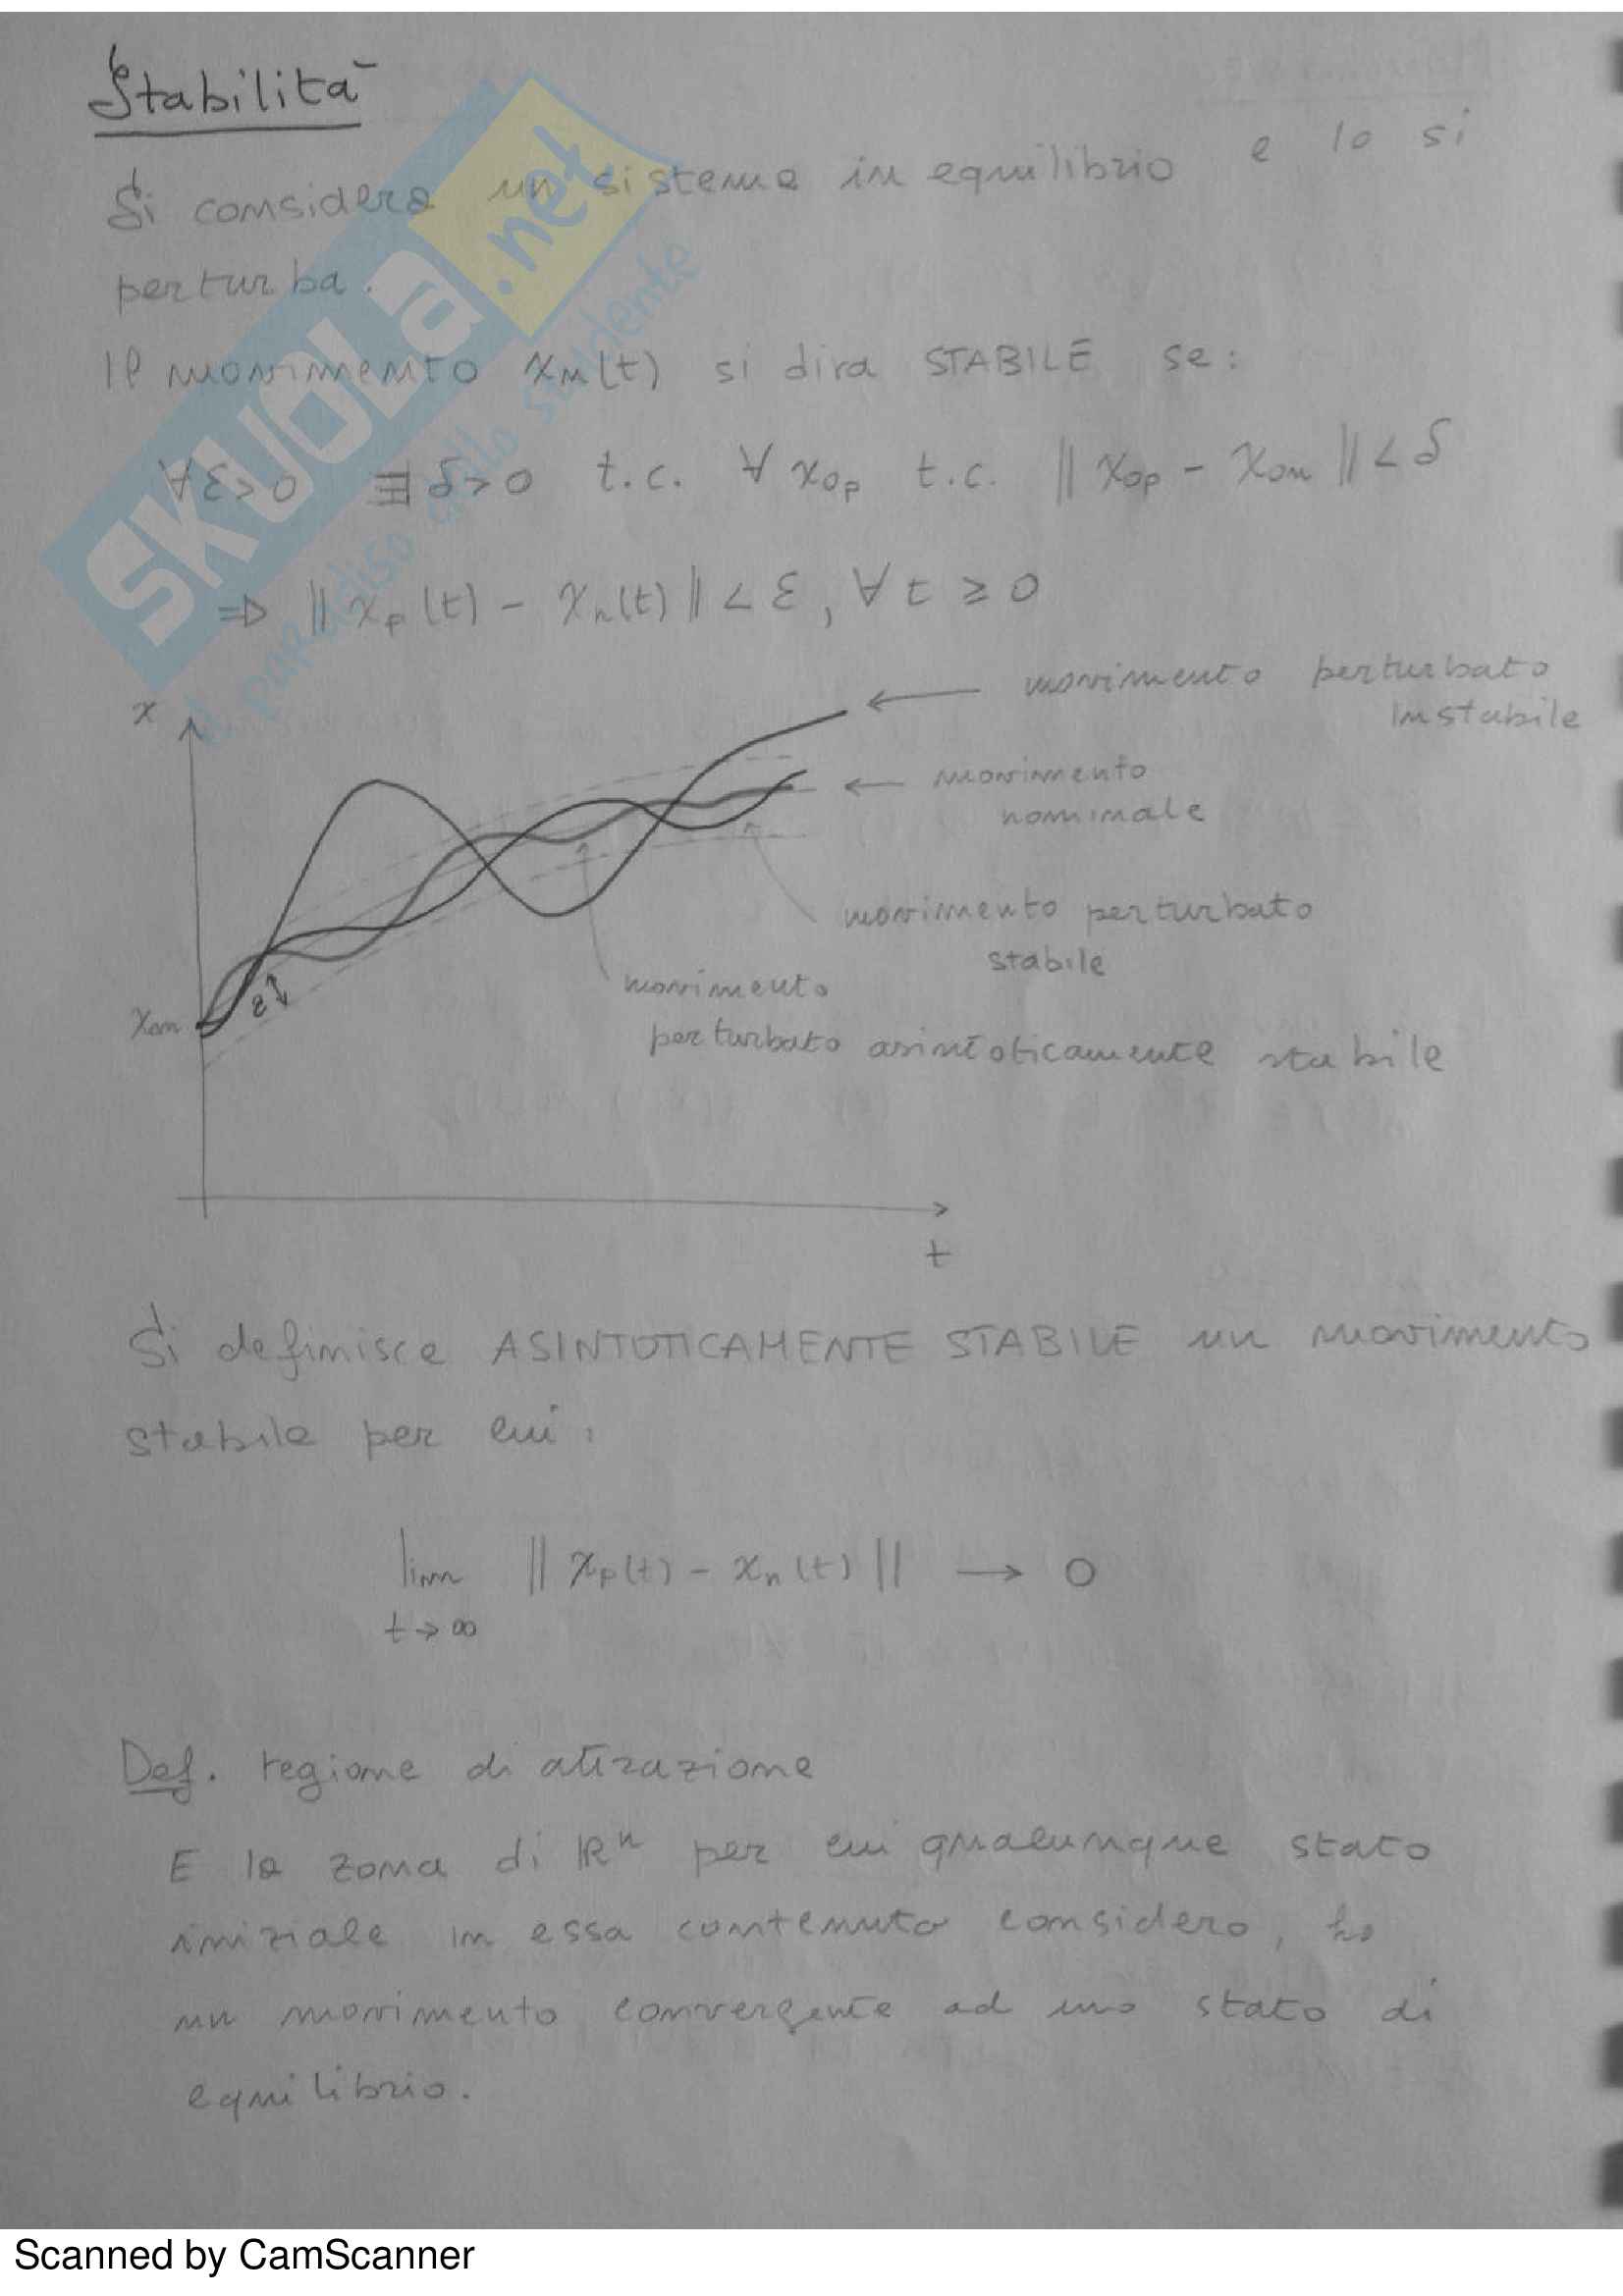 Stabilità
Si considera un sistema in equilibrio e lo si
perturba.
Il movimento xₙ(t) si dirà STABILE se:
∀ε>0 ∃ δ>0 t.c. ∀ x₀ₚ t.c. ‖ x₀ₚ - x₀ₙ ‖ < δ
⇒ ‖ xₚ(t) - xₙ(t) ‖ < ε, ∀ t ≥ 0
x
movimento perturbato
instabile
movimento
nominale
movimento perturbato
stabile
ε
x₀ₙ
movimento
perturbato asintoticamente stabile
t
Si definisce ASINTOTICAMENTE STABILE un movimento
stabile per cui:
lim ‖ xₚ(t) - xₙ(t) ‖ → 0
t→∞
Def. regione di attrazione
E la zona di ℝⁿ per cui qualunque stato
iniziale in essa contenuto considero, ho
un movimento convergente ad uno stato di
equilibrio.
SKUOLA.net
il paradiso dello studente
Scanned by CamScanner